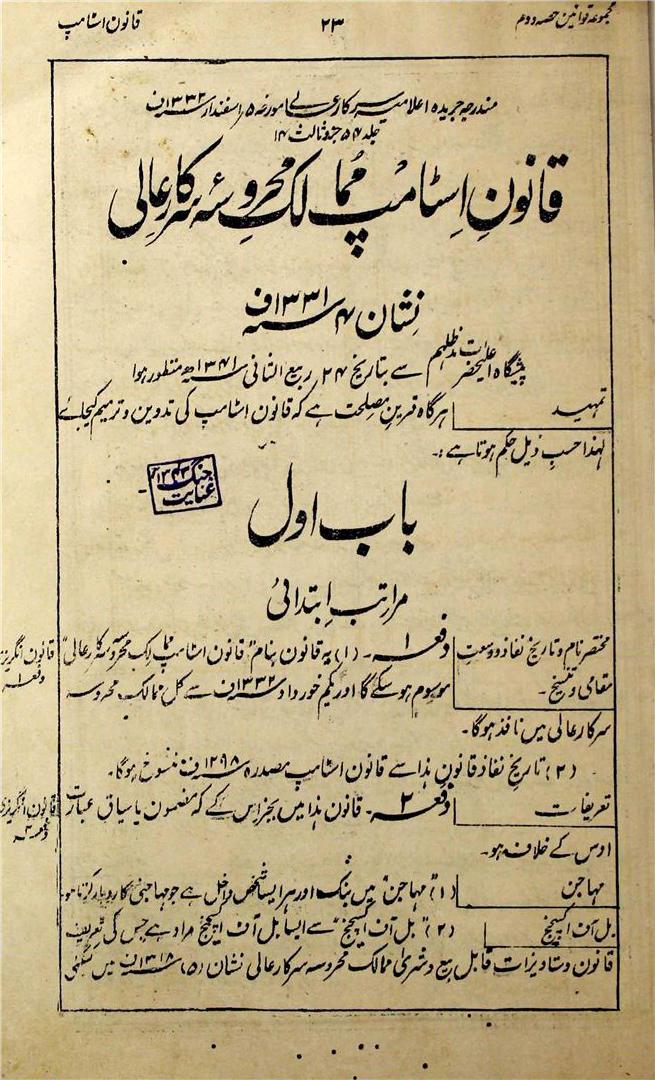 مجموعہ قوانین حصہ دوم
۲۳
قانون اسٹامپ
مندرجہ جریدہ اعلامیہ سرکار عالی مورخہ ۵ اسفندار ۱۳۳۲ف
جلد ۵۴ جزو ثالث ۱۴
قانونِ اِسٹامپ ممالک محروسۂ سرکارِ عالی
نِشان ۴ ۱۳۳۱ف سنہ
پیشگاہ اعلیحضرات مدظلہم سے بتاریخ ۲۴ ربیع الثانی ۱۳۴۱ھ منظور ہوا
تمہید
ہرگاہ قرین مصلحت ہے کہ قانون اسٹامپ کی تدوین و ترمیم کیجائے
لہذا حسبِ ذیل حکم ہوتا ہے :۔
جنگ ۱۳۴۳
عنایت
باب اول
مراتب اِبتدائی
مختصر نام و تاریخ نفاذ و وسعت
مقامی و تنسیخ ۔
دفعہ ۱ ۔ (۱) یہ قانون بنام "قانون اسٹامپ ممالک محروسہ سرکار عالی"
قانون انگریزی
دفعہ ۱
موسوم ہو سکے گا اور یکم خورداد ۱۳۳۲ف سے کل ممالک محروسہ
سرکار عالی میں نافذ ہوگا۔
(۲) تاریخ نفاذ قانون ہذا سے قانون اسٹامپ مصدرہ ۱۲۹۸ف منسوخ ہوگا۔
تعریفات
دفعہ ۲ ۔ قانون ہذا میں بجز اس کے کہ مضمون یا سیاق عبارت
قانون انگریزی
دفعہ ۲
اوس کے خلاف ہو۔
مہاجن
(۱) "مہاجن" میں بنک اور ہر ایسا شخص داخل ہے جو مہاجنی کا روبار کرتا ہو۔
بل آف اکسچینج
(۲) "بل آف اکسچینج" سے ایسا بل آف اکسچینج مراد ہے جس کی تعریف
قانون دستاویزات قابل بیع و شریٰ ممالک محروسہ سرکار عالی نشان (۵) ۱۳۱۸ف میں کیگئی